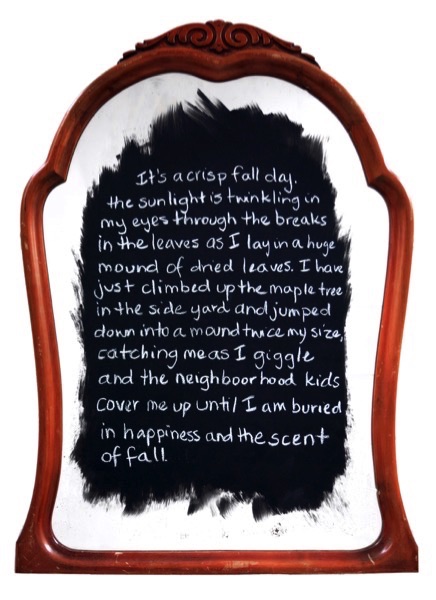 It's a crisp fall day.
the sunlight is twinkling in
my eyes through the breaks
in the leaves as I lay in a huge
mound of dried leaves. I have
just climbed up the maple tree
in the side yard and jumped
down into a mound twice my size,
catching me as I giggle
and the neighboorhood kids
cover me up until I am buried
in happiness and the scent
of fall.